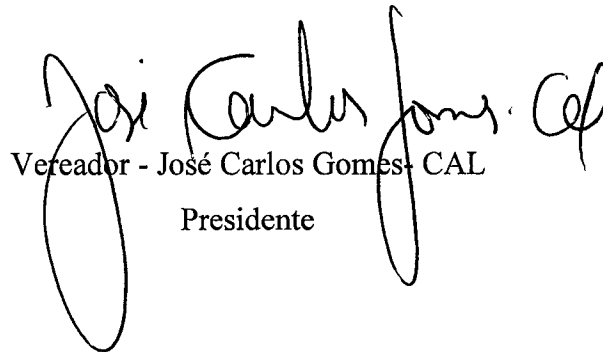 José Carlos Gomes. Cal
Vereador - José Carlos Gomes- CAL
Presidente